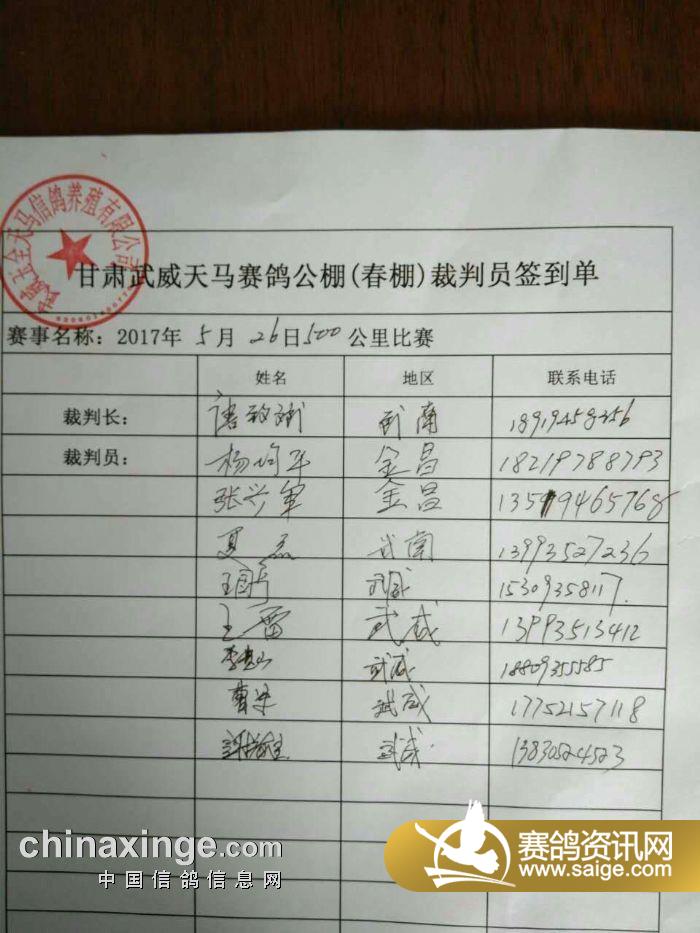 武威正全天马信鸽养殖有限公司
甘肃武威天马赛鸽公棚(春棚)裁判员签到单
赛事名称：2017年 5月 26日500 公里比赛
姓名 地区 联系电话
裁判长： 武南 18919458356
裁判员： 杨均平 金昌 18219788793
张兴军 金昌 13519465768
夏杰 武南 13993527236
武威 15309358117.
王雷 武威 13993513412
武威 18809355585
武威 17752157118
武威 13830524523
chinaxinge.com
中国信鸽信息网
赛鸽资讯网
www.saige.com